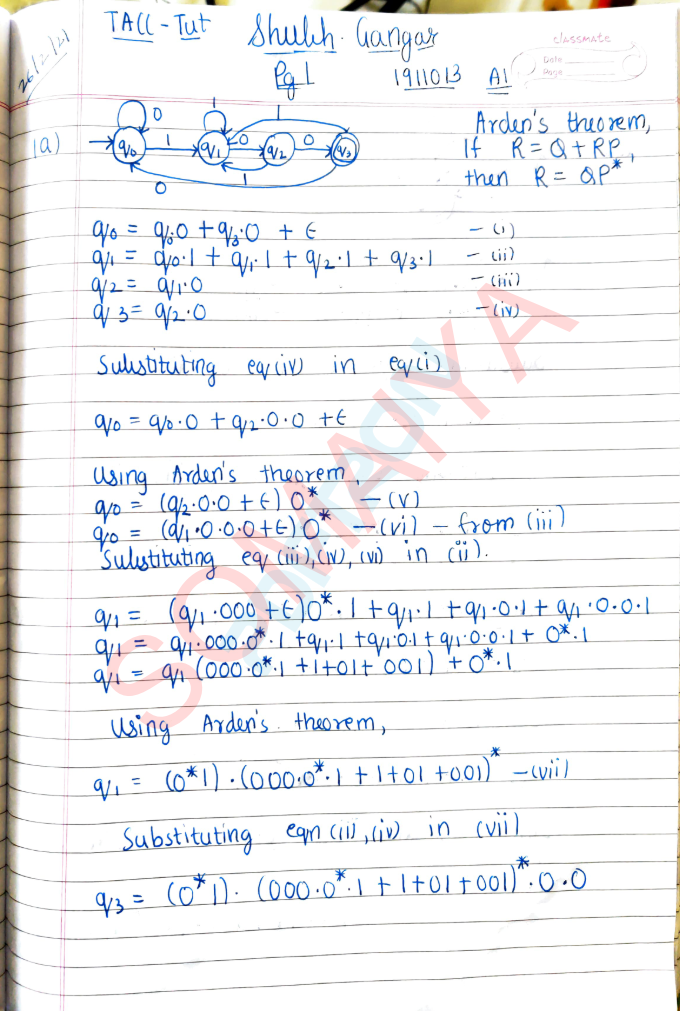 TACC - Tut Shubh Gangar
classmate
Date
Page
26/2/21
Pg 1 1911013 A1
1a)
q0 q1 q2 q3
0 1 1 0 0 1 1 0
Arden's theorem,
If R = Q + RP,
then R = QP*
q0 = q0·0 + q3·0 + ϵ - (i)
q1 = q0·1 + q1·1 + q2·1 + q3·1 - (ii)
q2 = q1·0 - (iii)
q3 = q2·0 - (iv)
Substituting eq (iv) in eq (i)
q0 = q0·0 + q2·0·0 + ϵ
Using Arden's theorem,
q0 = (q2·0·0 + ϵ) 0* - (v)
q0 = (q1·0·0·0 + ϵ) 0* - (vi) - from (iii)
Substituting eq (iii), (iv), (vi) in (ii).
q1 = (q1·000 + ϵ)0*·1 + q1·1 + q1·0·1 + q1·0·0·1
q1 = q1·000·0*·1 + q1·1 + q1·0·1 + q1·0·0·1 + 0*·1
q1 = q1 (000·0*·1 + 1 + 01 + 001) + 0*·1
Using Arden's theorem,
q1 = (0*1)·(000·0*·1 + 1 + 01 + 001)* - (vii)
Substituting eqn (iii), (iv) in (vii)
q3 = (0*1)·(000·0*·1 + 1 + 01 + 001)*·0·0
SOMAIYA